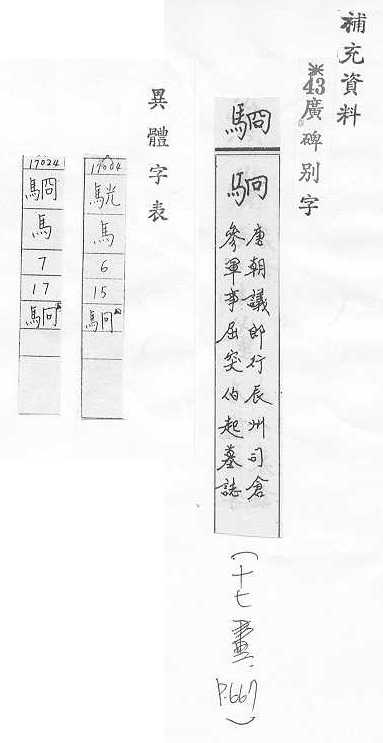 補充資料
※43廣碑別字
駉
唐朝議郎行辰州司倉
參軍事屈突伯起墓誌
(十七畫、P.667)
異體字表
17024
駫
馬
6
15
駉
17024
馬
7
17
駉